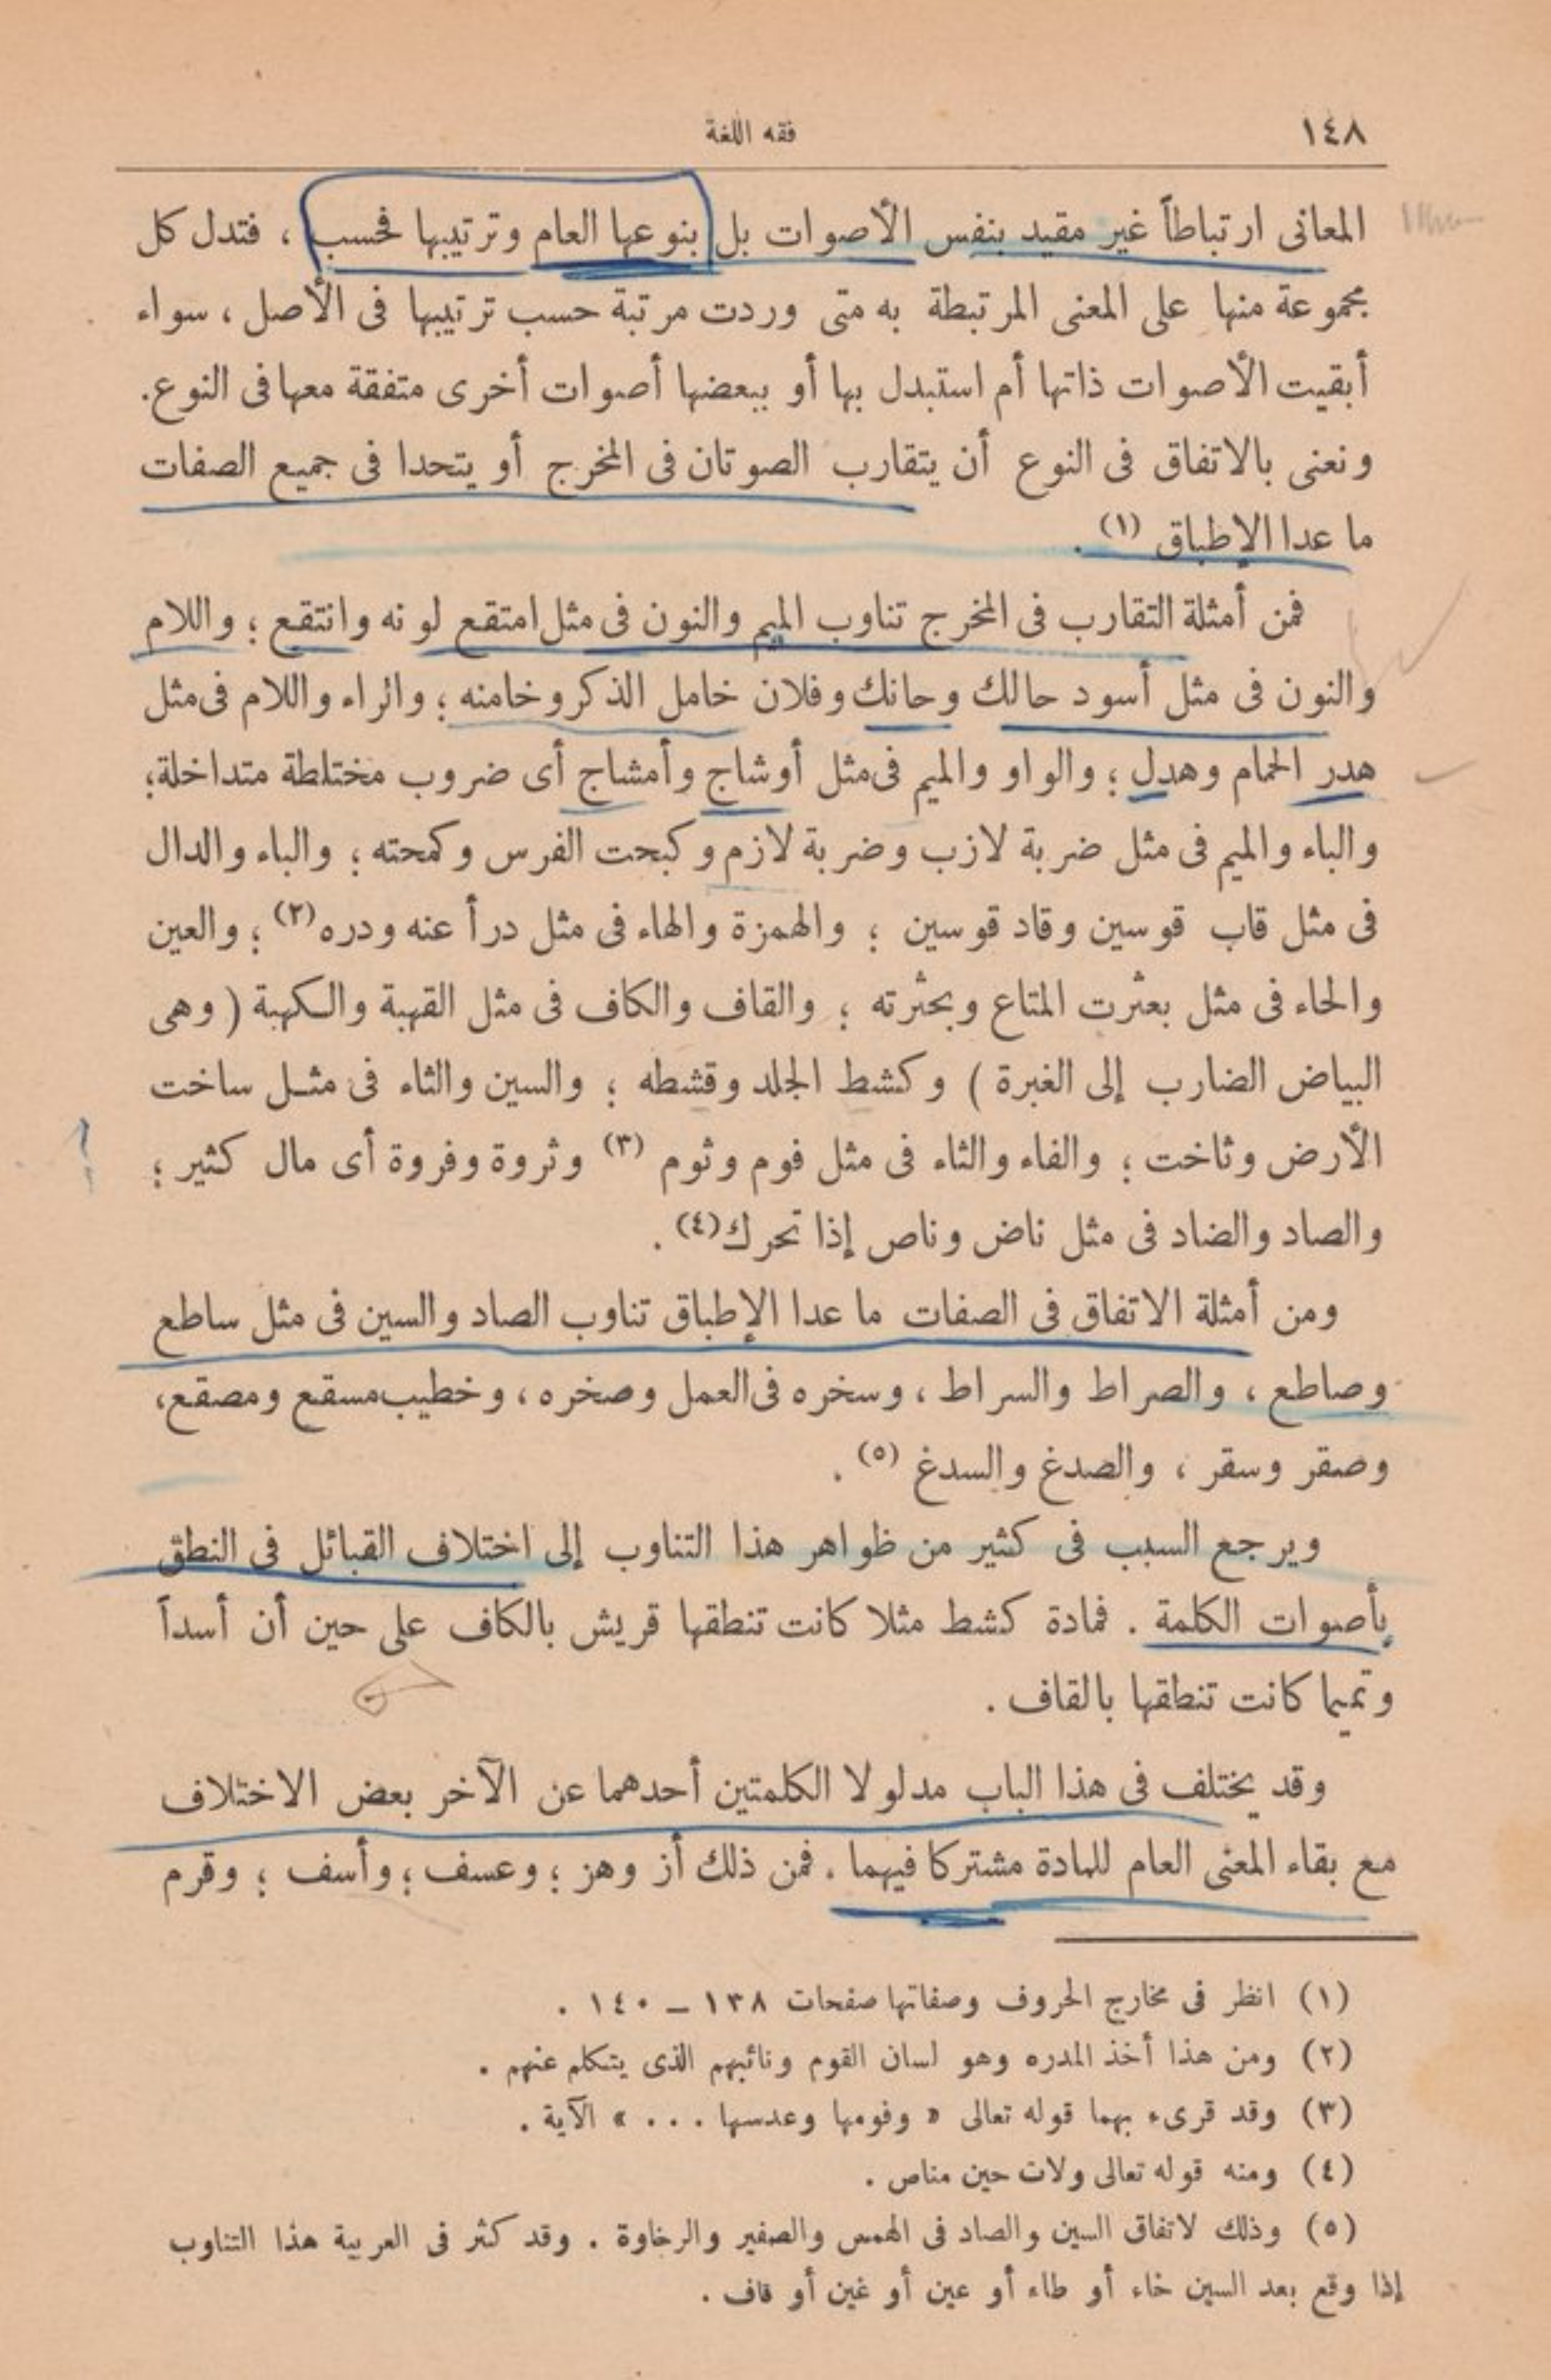 ١٤٨
فقه اللغة
المعانى ارتباطاً غير مقيد بنفس الأصوات بل بنوعها العام وترتيبها فحسب ، فتدل كل
مجموعة منها على المعنى المرتبطة به متى وردت مرتبة حسب ترتيبها فى الأصل ، سواء
أبقيت الأصوات ذاتها أم استبدل بها أو ببعضها أصوات أخرى متفقة معها فى النوع.
ونعنى بالاتفاق فى النوع أن يتقارب الصوتان فى المخرج أو يتحدا فى جميع الصفات
ما عدا الإطباق (١) .
فمن أمثلة التقارب فى المخرج تناوب الميم والنون فى مثل امتقع لونه وانتقع ؛ واللام
والنون فى مثل أسود حالك وحانك وفلان خامل الذكر وخامنه ؛ والراء واللام فى مثل
هدر الحمام وهدل ؛ والواو والميم فى مثل أوشاج وأمشاج أى ضروب مختلطة متداخلة؛
والباء والميم فى مثل ضربة لازب وضربة لازم وكبحت الفرس وكمحته ؛ والباء والدال
فى مثل قاب قوسين وقاد قوسين ؛ والهمزة والهاء فى مثل درأ عنه ودره (٢) ؛ والعين
والحاء فى مثل بعثرت المتاع وبحثرته ؛ والقاف والكاف فى مثل القهبة والكهبة ( وهى
البياض الضارب إلى الغبرة ) وكشط الجلد وقشطه ؛ والسين والثاء فى مثل ساخت
الأرض وثاخت ؛ والفاء والثاء فى مثل فوم وثوم (٣) وثروة وفروة أى مال كثير ؛
والصاد والضاد فى مثل ناض وناص إذا تحرك (٤) .
ومن أمثلة الاتفاق فى الصفات ما عدا الإطباق تناوب الصاد والسين فى مثل ساطع
وصاطع ، والصراط والسراط ، وسخره فى العمل وصخره ، وخطيب مسقع ومصقع،
وصقر وسقر ، والصدغ والسدغ (٥) .
ويرجع السبب فى كثير من ظواهر هذا التناوب إلى اختلاف القبائل فى النطق
بأصوات الكلمة . فمادة كشط مثلا كانت تنطقها قريش بالكاف على حين أن أسداً
وتميما كانت تنطقها بالقاف .
وقد يختلف فى هذا الباب مدلولا الكلمتين أحدهما عن الآخر بعض الاختلاف
مع بقاء المعنى العام للمادة مشتركا فيهما . فمن ذلك أز وهز ؛ وعسف ؛ وأسف ؛ وقرم
(١) انظر فى مخارج الحروف وصفاتها صفحات ١٣٨ – ١٤٠ .
(٢) ومن هذا أخذ المدره وهو لسان القوم ونائبهم الذى يتكلم عنهم .
(٣) وقد قرىء بهما قوله تعالى « وفومها وعدسها . . . » الآية .
(٤) ومنه قوله تعالى ولات حين مناص .
(٥) وذلك لاتفاق السين والصاد فى الهمس والصفير والرخاوة . وقد كثر فى العربية هذا التناوب
إذا وقع بعد السين خاء أو طاء أو عين أو غين أو قاف .